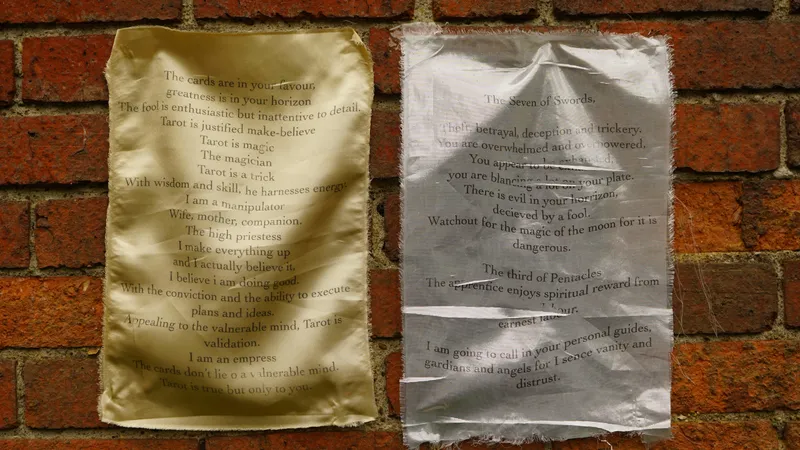 The cards are in your favour,
greatness is in your horizon
The fool is enthusiastic but inattentive to detail.
Tarot is justified make-believe
Tarot is magic
The magician
Tarot is a trick
With wisdom and skill, he harnesses energy.
I am a manipulator
Wife, mother, companion.
The high priestess
I make everything up
and I actually believe it,
I believe i am doing good.
With the conviction and the ability to execute
plans and ideas.
Appealing to the valnerable mind, Tarot is
validation.
I am an empress
The cards don't lie o a v dnerable mind.
Tarot is true but only to you.
The Seven of Swords,
Theft, betrayal, deception and trickery.
You are overwhelmed and overpowered,
You appear to be
you are blancing a lot on your plate.
There is evil in your horrizon,
decieved by a fool.
Watchout for the magic of the moon for it is
dangerous.
The third of Pentacles
The apprentice enjoys spiritual reward from
earnest
I am going to call in your personal guides,
gardians and angels for I sence vanity and
distrust.